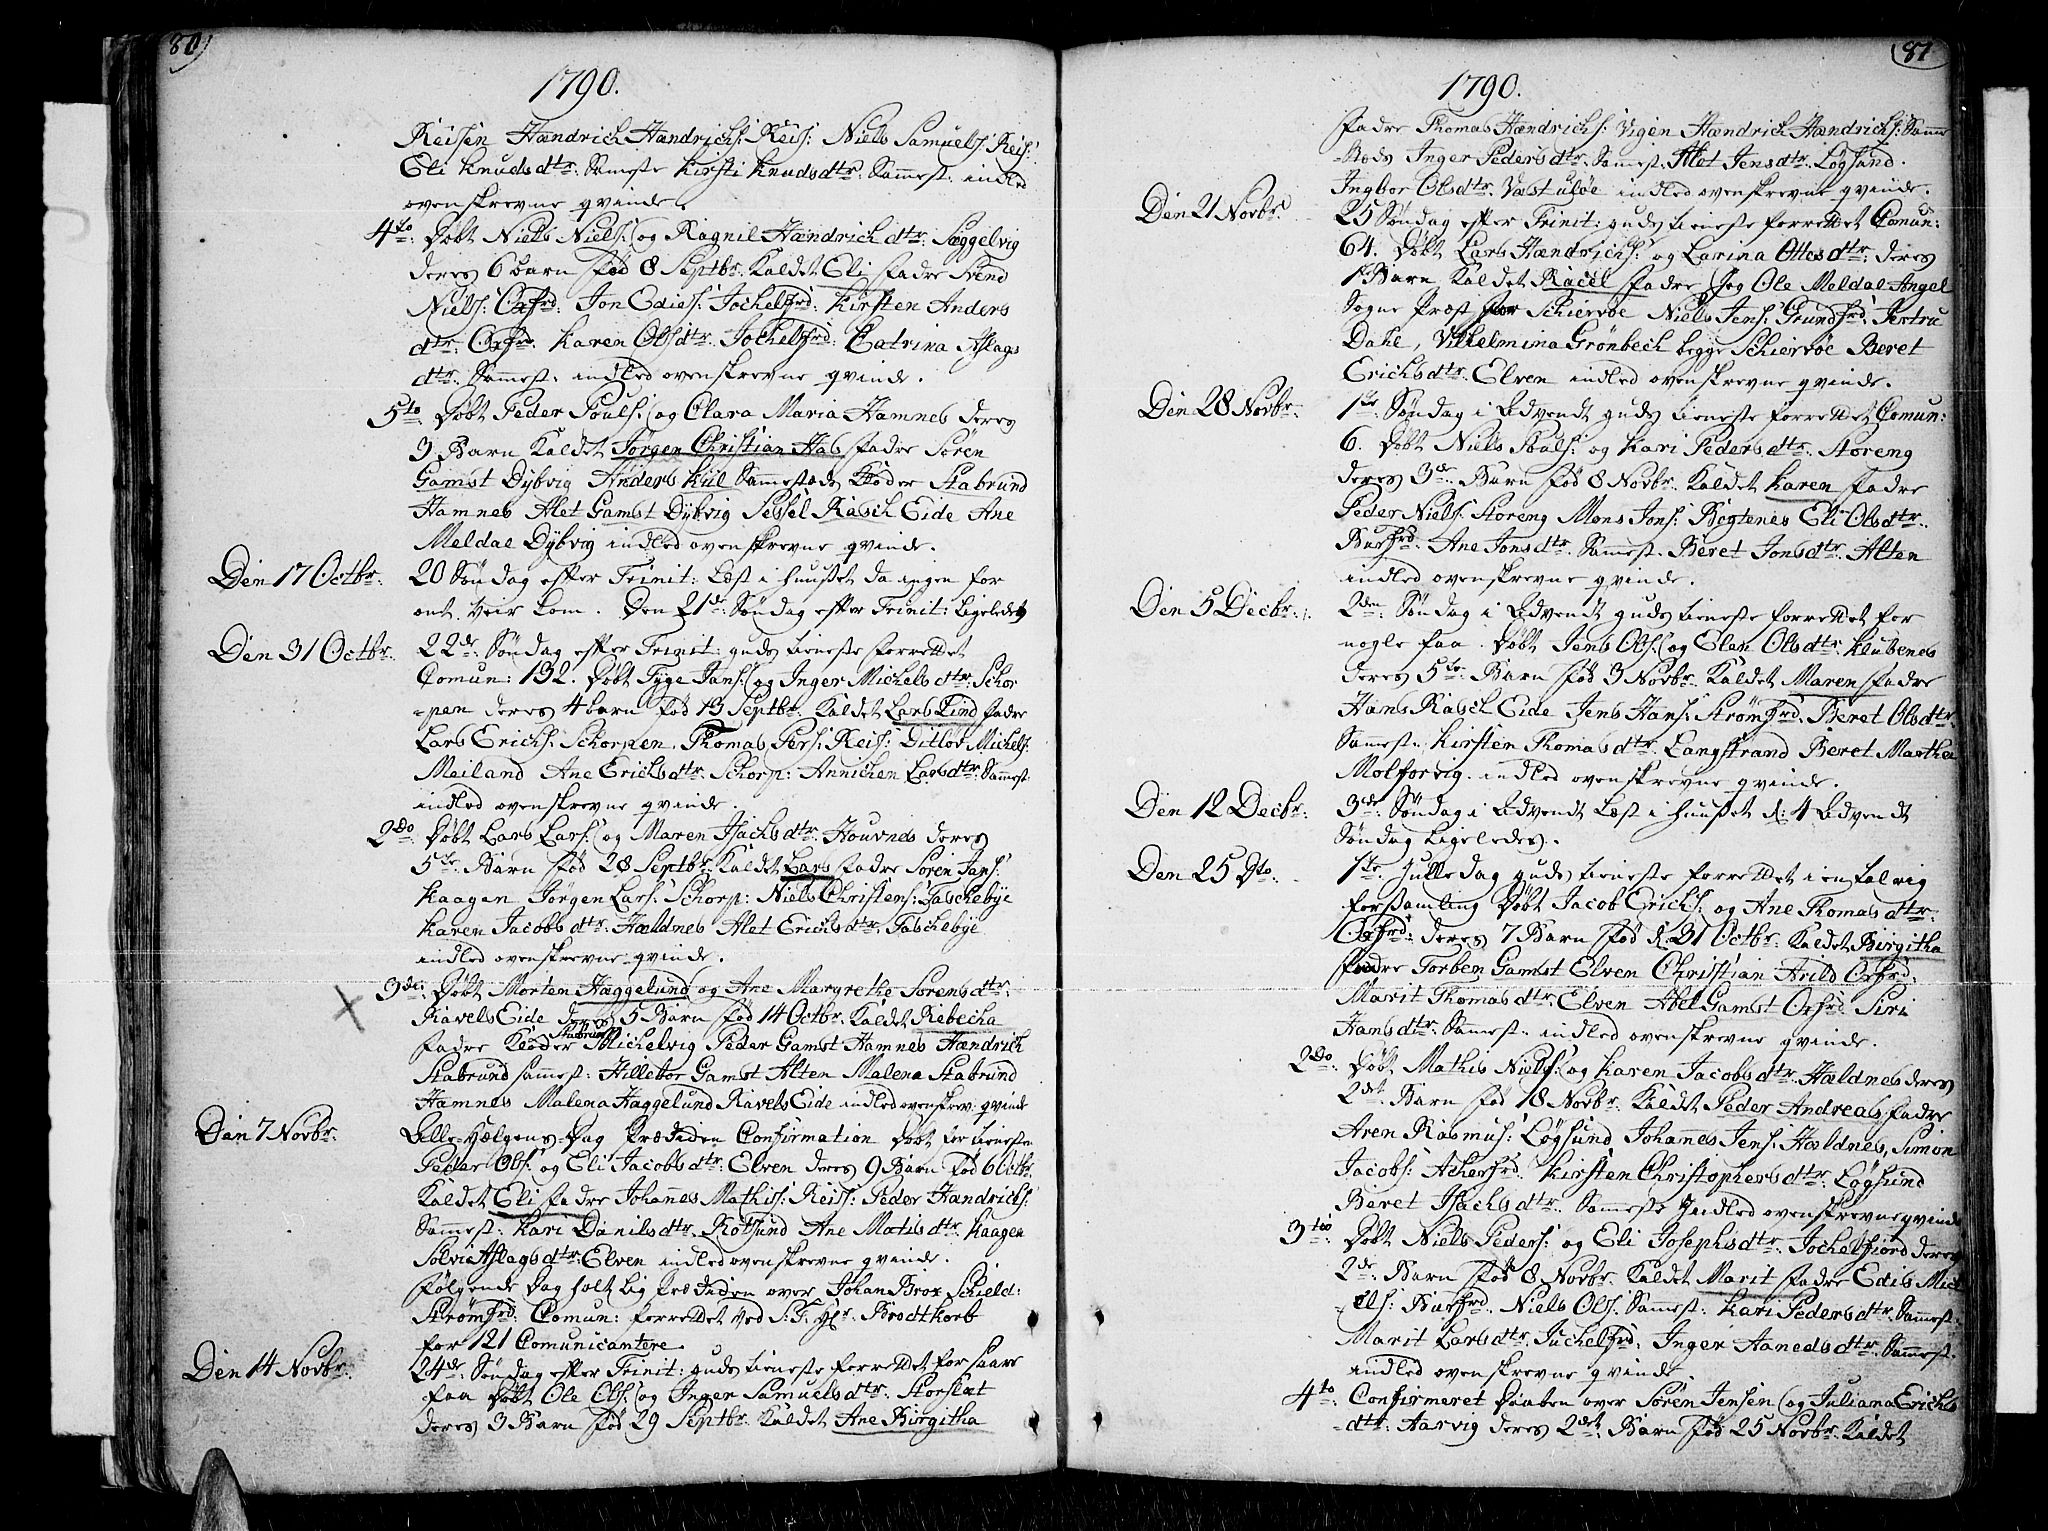 80)
1790.
Reisen Hændrich Hændrichs: Reis: Niels Samuels: Reis:
Eli Knudsdtr: Sameste Kirsti Knudsdtr: Sammest: indled
ovenskrevne qvinde.
4to: Døbt Niels Niels: og Ragnil Hændrichdtr: Sæggelvig
deres 6 barn fød 8 Septbr: Kaldet Eli fadre Svend
Niels: Oxfrd: Jon Edies: Jochelfrd: Kirsten Anders
dtr: Oxfrd: Karen Olsdtr: Jochelfrd: Catrina Aslags
dtr: Sammest: indled ovenskrevne qvinde.
5to Døbt Peder Pouls: og Clara Maria Hamnes deres
3 Barn Kaldet Jørgen Christian Has fadre Søren
Gamst Dybvig Anders Kiil Sammestæds Kløder Stabrund
Hamnes Alet Gamst Dybvig Sessel Rasch Eide Ane
Meldal Dybvig indled ovenskrevne qvinde.
Den 17 Octbr: 20 Søndag efter Trinit: Læst i huuset da ingen for
ont veir kom. Den 21de: Søndag efter Trinit: ligeledes
Den 31 Octbr: 22de: Søndag efter Trinit: guds tieneste forrettet
Comun: 132. Døbt Tyge Jans: og Inger Michelsdtr: Schor
-pen deres 4 barn fød 13 Septbr: Kaldet Lars Lind fadre
Lars Erichs: Schorpen, Thomas Pers: Reis: Ditløv Michels:
Meiland Ane Erichsdtr: Schorp: Annichen Larsdtr: Sammest:
indled ovenskrevne qvinde.
2do: Døbt Lars Lars: og Maren Isachsdtr: Houvnes deres
5te: Barn fød 28 Septbr: Kaldet Lars fadre Søren Jans:
Kaagen Jørgen Lars: Schorp: Niels Christens: Taschebye
Karen Jacobsdtr: Hældnes Alet Erichsdtr: Taschebye
indled ovenskrevne qvinde.
3de: Døbt Morten Hæggelund og Ane Margrethe Sørensdtr:
Ravels Eide deres 5 Barn fød 14 Octbr: Kaldet Rebecha
fadre Kløder Stabrun Michelvig Peder Gamst Hamnes Hændrich
Stabrund sammest: Hillebor Gamst Alten Malena Stabrund
Hamnes Malena Haggelund Ravels Eide indled ovenskrev: qvinde
Den 7 Novbr: Alle-Hælgens-Dag Prædiken Confirmation Døbt for tienesten
Peder Ols: og Eli Jacobsdtr: Elven deres 9 Barn fød 6 Octbr:
Kaldet Eli fadre Johannes Mathis: Reis: Peder Hændrichs:
Sammest: Kari Danilsdtr: Rotsund Ane Matisdtr: Kaagen
Solvi Aslagsdtr: Elven indled ovenskrevne qvinde.
følgende Dag holt Lig Prædiken over Johan Brox Schield:
Strømfrd: Comun: forrettet ved S:T: Hr: Brodtkorb
for 121 Comunicantere
Den 14 Novbr: 24de: Søndag efter Trinit: guds tieneste forrettet for saare
faa Døbt Ole Ols: og Inger Samuelsdtr: Storslæt
deres 3 Barn fød 29 Septbr: Kaldet Ane Birgitha
81
1790.
fadre Thomas Hændrichs: Vigen Hændrich Hændrichs: Samme
-Stæds Inger Pedersdtr: Samest: Alet Jensdtr: Løgsund.
Ingbor Olsdtr: Vastuløe indled ovenskrevne qvinde.
Den 21 Novbr: 25 Søndag efter Trinit: guds tieneste forrettet Comun:
64. Døbt Lars Hændrichs: og Larina Ottesdtr: deres
1 Barn Kaldet Racel fadre Jeg Ole Meldal Angel
Sogne Præst for Schiervøe Niels Jens: Grundfrd: Jertru
Dahl, Vilhelmina Grønbech begge Schiervøe Beret
Erichsdtr: Elven indled ovenskrevne qvinde.
Den 28 Novbr: 1ste: Søndag i Advendt guds tieneste forrettet Comun:
6. Døbt Niels Pouls: og Kari Pedersdtr: Storeng
deres 3de: Barn fød 8 Novbr: Kaldet Karen fadre
Peder Niels: Storeng Mons Jons: Bogtenes Eli Olsdtr:
Burfrd: Ane Jonsdtr: Sammest: Beret Jonsdtr: Alten
indled ovenskrevne qvinde.
Den 5 Decbr: 2den: Søndag i Advendt guds tieneste forrettet for
nogle faa. Døbt Jens Ols: og Elen Olsdtr: Klubenes
deres 5te: Barn fød 3 Novbr: Kaldet Maren fadre
Hans Rasch Eide Jens Hans: Strømfrd: Beret Olsdtr:
Sammest: Kirsten Thomasdtr: Langstrand Beret Martha
Molforvig indled ovenskrevne qvinde.
Den 12 Decbr: 3de: Søndag i Advendt Læst i huuset d: 4 Advendt
Søndag ligeledes.
Den 25 Dto: 1ste: Julledag guds tieneste forrettet i en talrig
forsamling Døbt Jacob Erichs: og Ane Thomasdtr:
Oxfrd: deres 7 Barn fød d: 31 Octbr: Kaldet Birgitha
fadre Torben Gamst Elven Christian Arild Oxfrd:
Marit Thomasdtr: Elven Abel Gamst Oxfrd Siri
Hansdtr: Sammest: indled ovenskrevne qvinde.
2do: Døbt Mathis Niels: og Karen Jacobsdtr: Hældnes deres
2det Barn fød 18 Novbr: Kaldet Peder Andreas fadre
Aren Rasmus: Løgsund Johanes Jens: Hældnes, Simon
Jacobs: Acherfrd: Kirsten Christophersdtr: Løgsund
Beret Isachsdtr: Sammeste Indled ovenskrevne qvinde
3tio: Døbt Niels Peders: og Eli Josephsdtr: Jochelfiord deres
2de: Barn fød 8 Novbr: Kaldet Marit fadre Edis Mich
-els: Burfrd: Niels Ols: Sammest: Kari Pedersdtr: Sammest:
Marit Larsdtr: Juchelfrd: Inger Hanedsdtr: Sammest:
indled ovenskrevne qvinde.
4to: Confirmeret Daaben over Søren Jensen og Juliana Erichs
-dtr: Aarvig deres 2det: Barn fød 25 Novbr: Kaldet